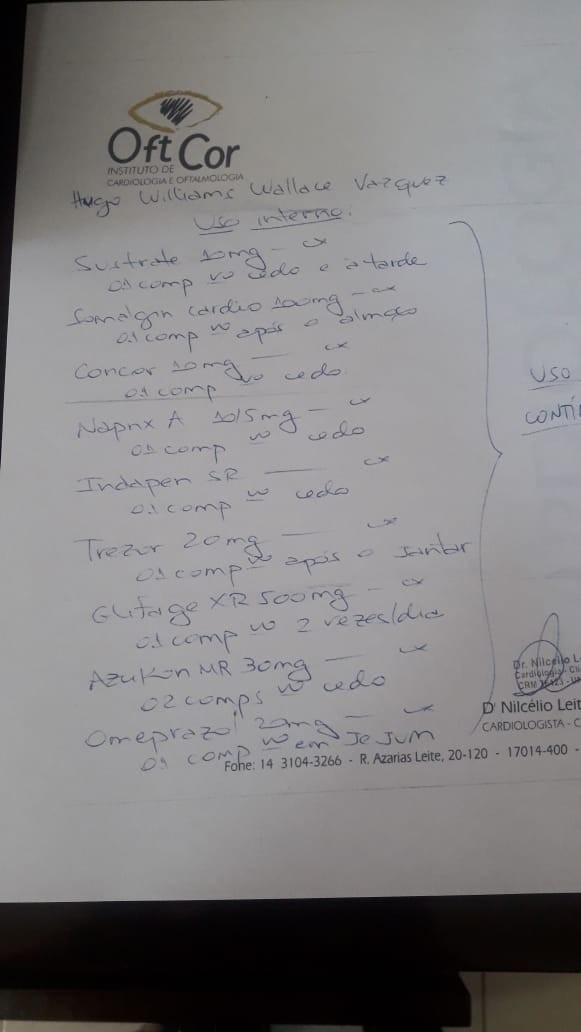 OftCor
INSTITUTO DE
CARDIOLOGIA E OFTALMOLOGIA
Hugo Williams Wallace Vazquez
Uso interno.
Sustrate 10mg - cx
01 comp vo cedo e a tarde
Somalgin cardio 100mg - cx
01 comp vo após o almoço
Concor 10mg - cx
01 comp vo cedo
Naprix A 10/5mg - cx
01 comp vo cedo
Indapen SR - cx
01 comp vo cedo
Trezor 20mg - cx
01 comp vo após o jantar
Glifage XR 500mg - cx
01 comp vo 2 vezes/dia
Azukon MR 30mg - cx
02 comps vo cedo
Omeprazol 20mg - cx
01 comp vo em JeJum
USO
CONTÍ
Dr. Nilcélio L
Cardiologia - Cli
CRM
Dr Nilcélio Leit
CARDIOLOGISTA - C
Fone: 14 3104-3266 - R. Azarias Leite, 20-120 - 17014-400 -